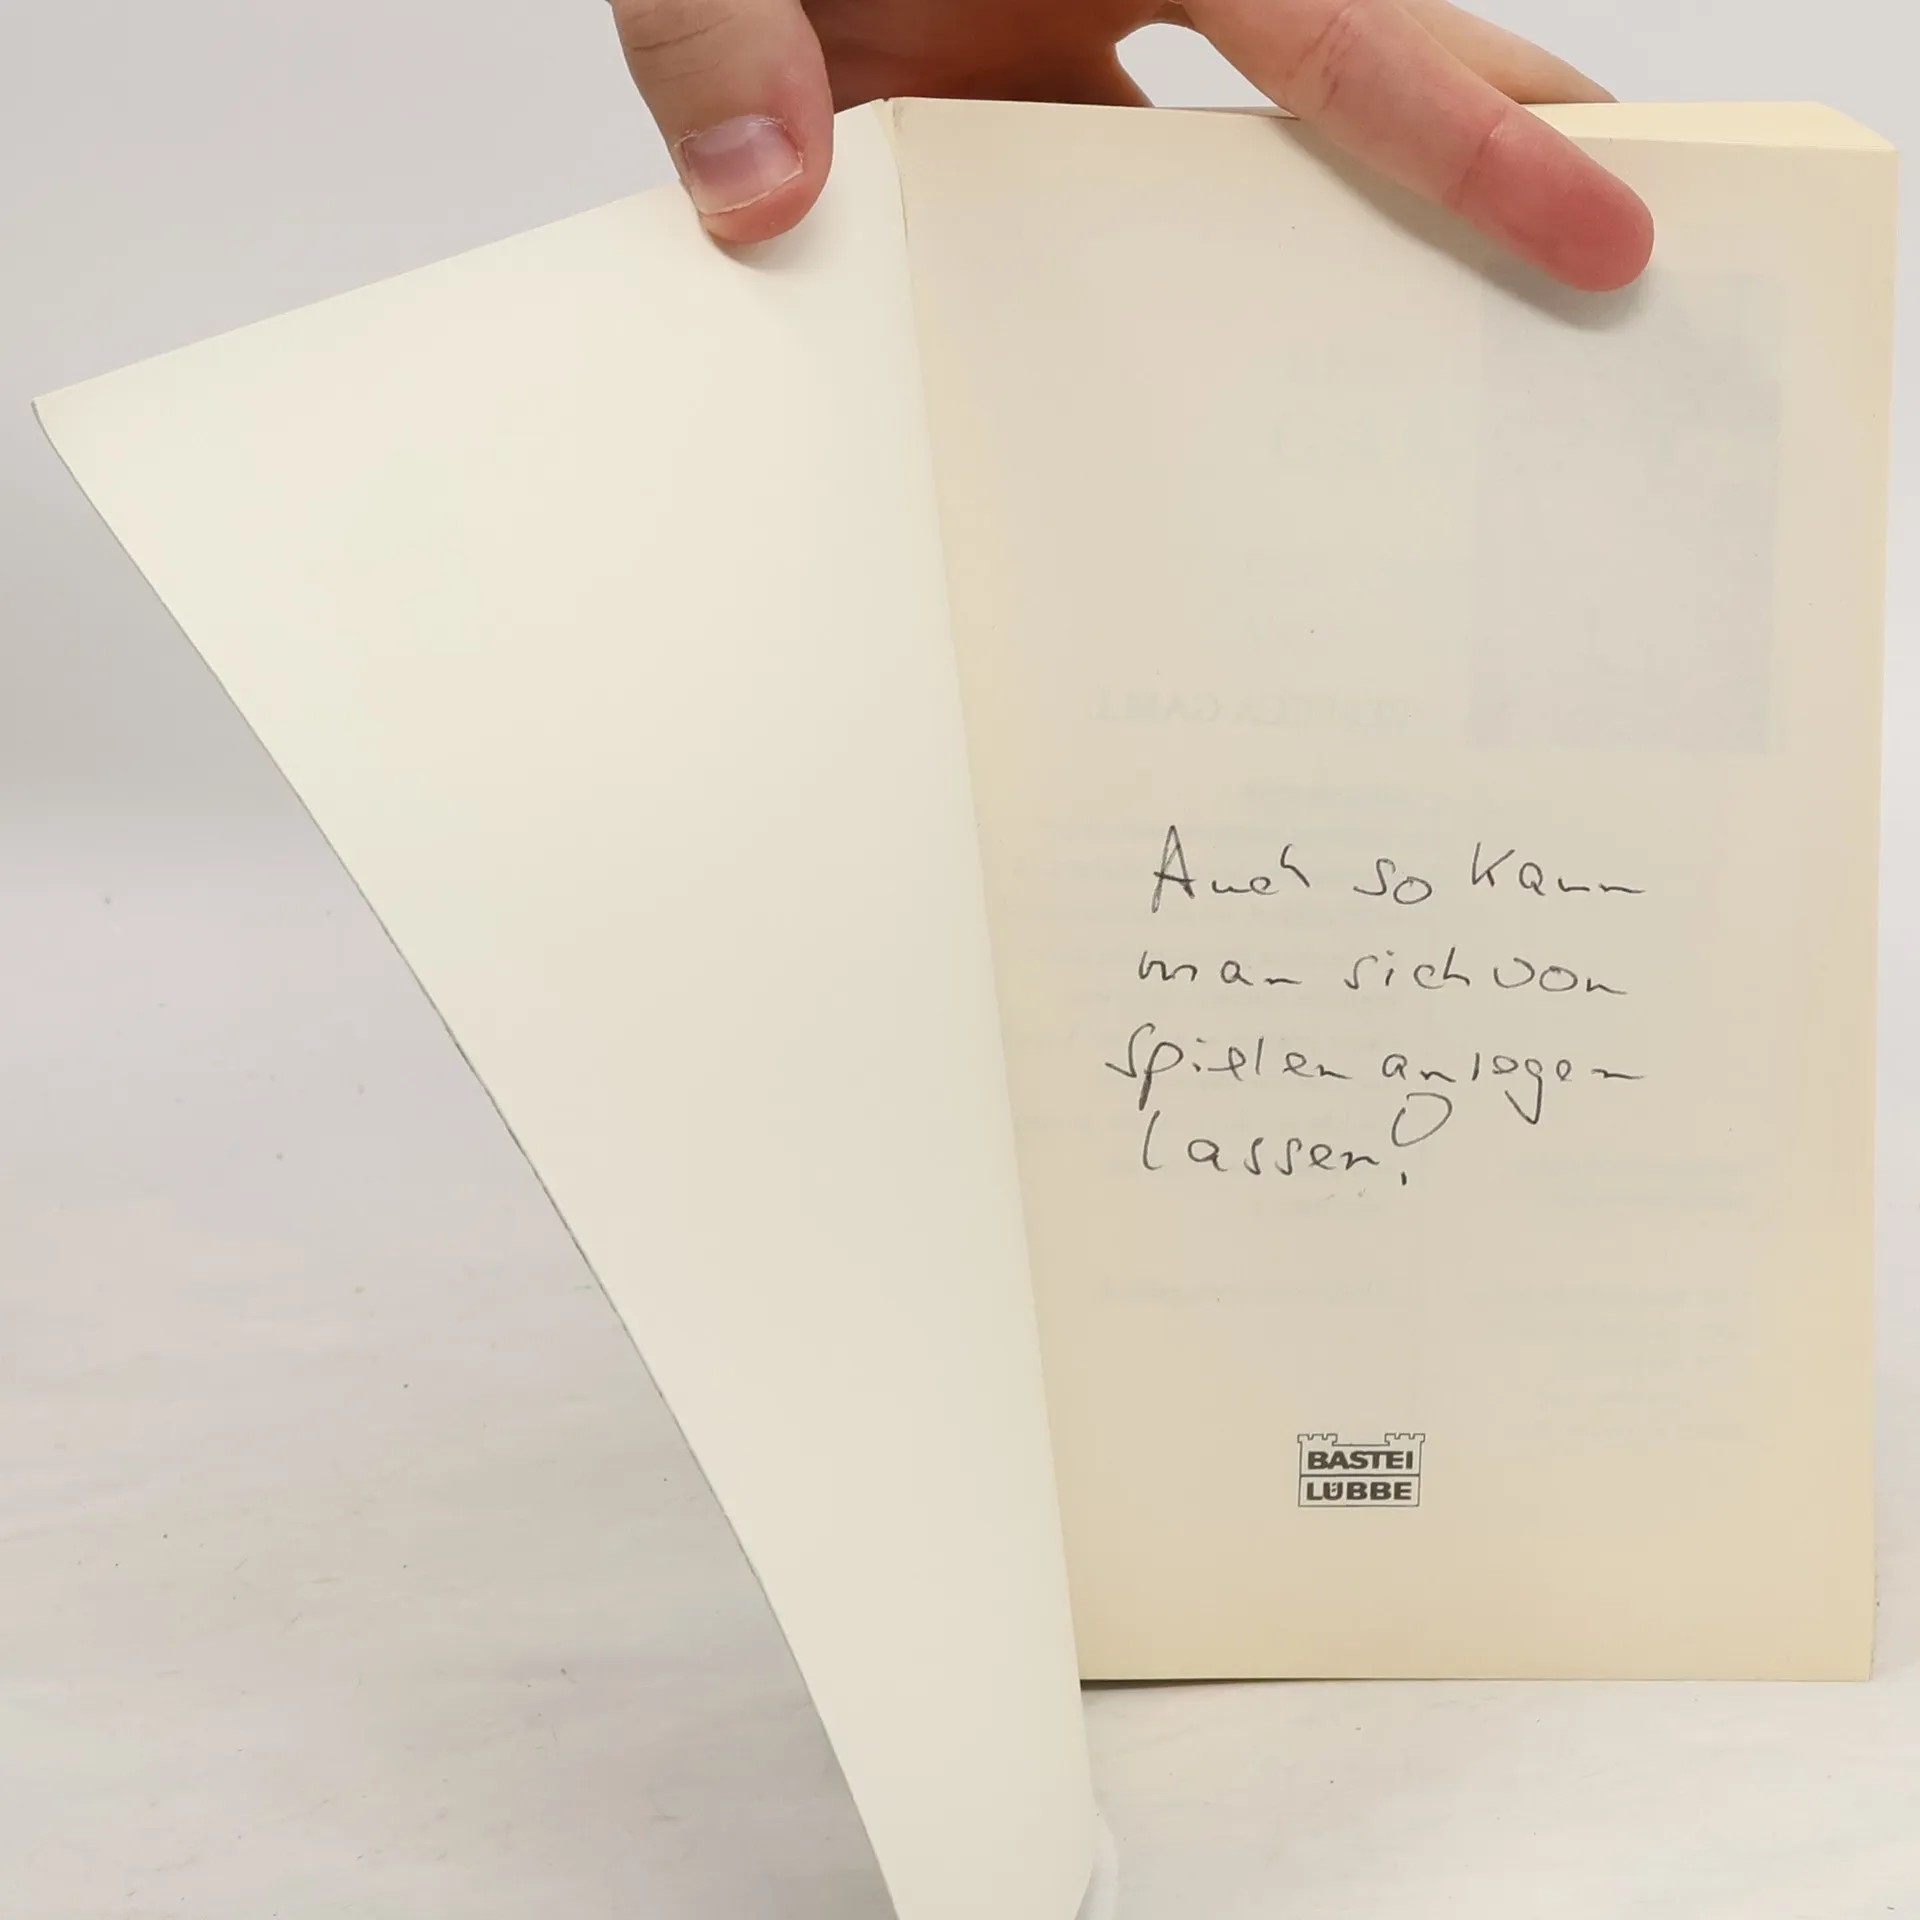 Auch so kann
man sich von
Spielen anregen
lassen!
BASTEI
LÜBBE